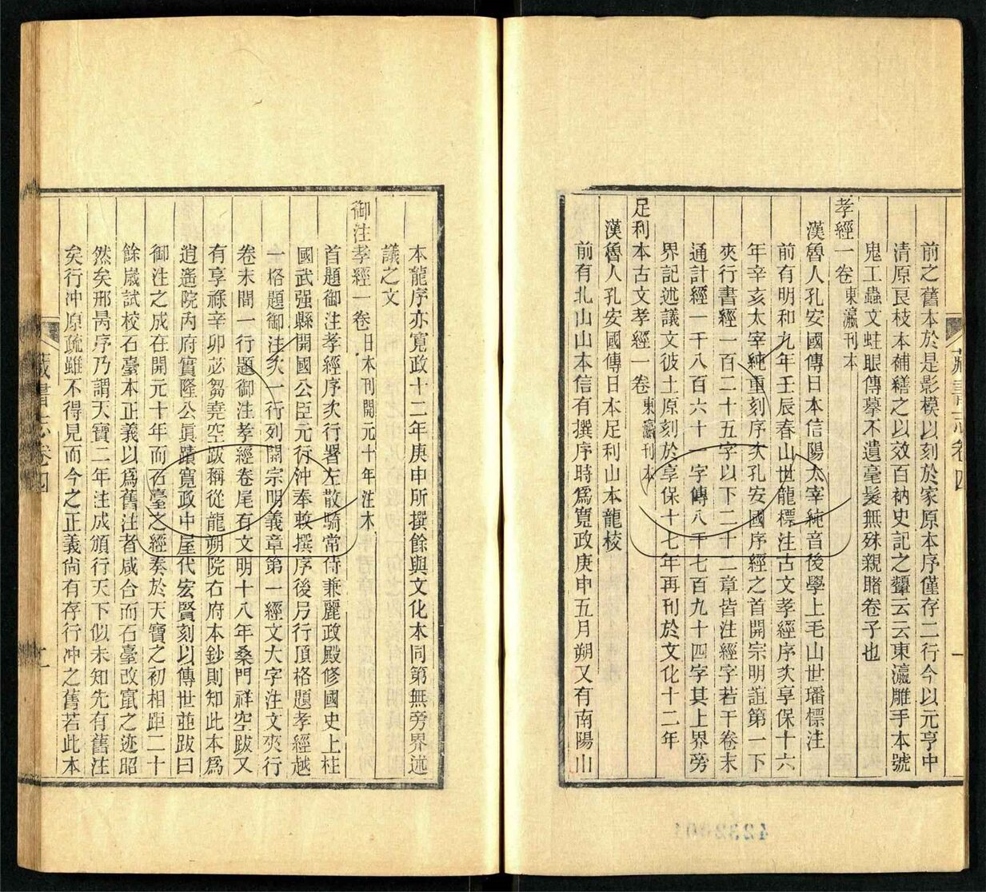 前之舊本於是影模以刻於家原本序僅存二行今以元亨中
清原良枝本補繕之以效百衲史記之顰云云東瀛雕手本號
鬼工蟲文蛀眼傳摹不遺毫髮無殊親睹卷子也
孝經一卷東瀛刊本
漢魯人孔安國傳日本信陽太宰純音後學上毛山世璠標注
前有明和九年壬辰春山世龍標注古文孝經序次享保十六
年辛亥太宰純重刻序次孔安國序經之首開宗明誼第一下
夾行書經一百二十五字以下二十二章皆注經字若干卷末
通計經一千八百六十一字傳八千七百九十四字其上界旁
界記述議文彼土原刻於享保十七年再刊於文化十二年
足利本古文孝經一卷東瀛刊本
漢魯人孔安國傳日本足利山本龍校
前有北山山本信有撰序時爲寬政庚申五月朔又有南陽山
藏書志卷四
一
本龍序亦寬政十二年庚申所撰餘與文化本同第無旁界述
議之文
御注孝經一卷日本刊開元十年注本
首題御注孝經序次行署左散騎常侍兼麗政殿修國史上柱
國武强縣開國公臣元行沖奉敕撰序後另行頂格題孝經越
一格題御注次一行列開宗明義章第一經文大字注文夾行
卷末間一行題御注孝經卷尾有文明十八年桑門祥空跋又
有享祿辛卯苾芻堯空跋稱從龍翔院右府本鈔則知此本爲
逍遥院內府實隆公眞蹟寬政中屋代宏賢刻以傳世並跋曰
御注之成在開元十年而石臺之經奏於天寶之初相距二十
餘嵗試校石臺本正義以爲舊注者咸合而石臺改竄之迹昭
然矣邢昺序乃謂天寶二年注成頒行天下似未知先有舊注
矣行沖原疏雖不得見而今之正義尚有存行沖之舊若此本
藏書志卷四